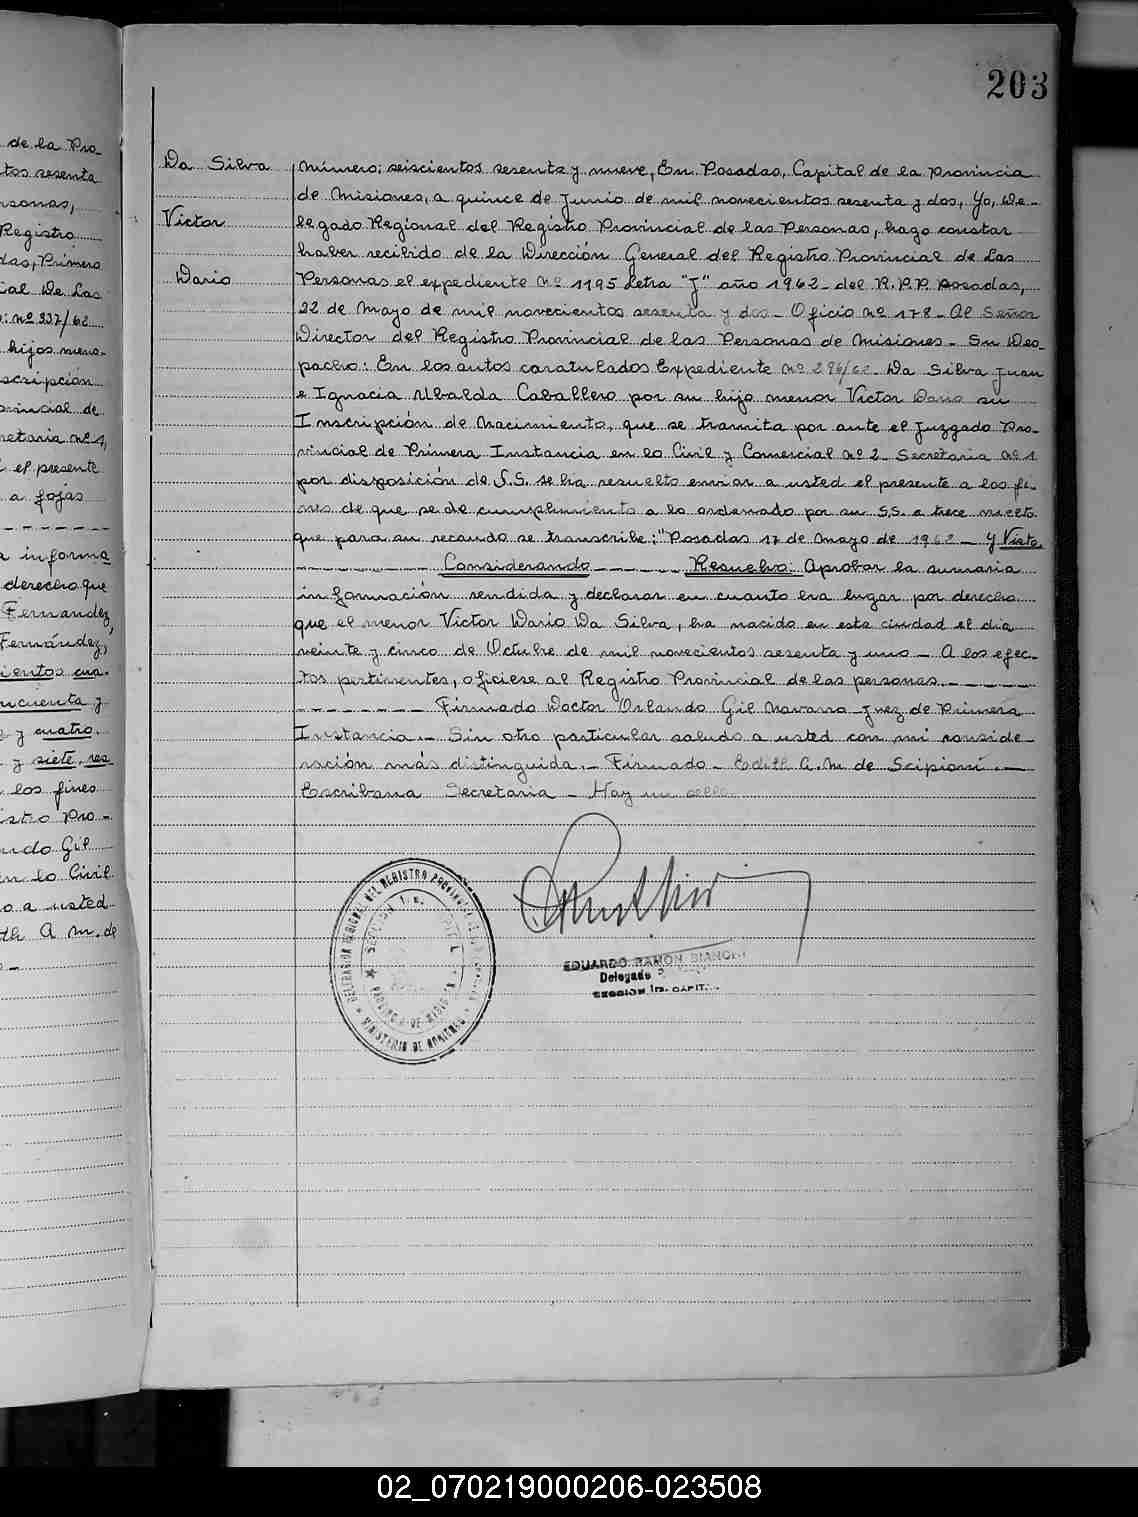 203
de la Pro-
tos sesenta
rsonas,
Registro
das, Primero
ial de Las
: nº 337/62
hijos meno-
scripción
provincial de
retaria nº 1,
el presente
a fojas
a informa
derecho que
Fernandez,
Fernández,
ientos cua-
ncuenta y
y cuatro.
y siete, res
los fines
istro Pro-
ndo Gil
en lo Civil
o a usted
th A. M. de
Da Silva
Victor
Dario
Número: seiscientos sesenta y nueve, En Posadas, Capital de la Provincia
de Misiones, a quince de Junio de mil novecientos sesenta y dos, Yo, De-
legado Regional del Registro Provincial de las Personas, hago constar
haber recibido de la Dirección General del Registro Provincial de Las
Personas el expediente nº 1195 Letra "J" año 1962 - del R.P.P. Posadas,
22 de Mayo de mil novecientos sesenta y dos - Oficio nº 178 - Al Señor
Director del Registro Provincial de las Personas de Misiones - Su Des-
pacho: En los autos caratulados Expediente nº 296/62 - Da Silva Juan
e Ignacia Ubalda Caballero por su hijo menor Victor Dario su
Inscripción de Nacimiento, que se tramita por ante el Juzgado Pro-
vincial de Primera Instancia en lo Civil y Comercial nº 2 Secretaria nº 1
por disposición de S.S. se ha resuelto enviar a usted el presente a los fi-
nes de que se de cumplimiento a lo ordenado por su S.S. a trece
que para su recaudo se transcribe: "Posadas 17 de Mayo de 1962 - Y Visto
Considerando - Resuelvo: Aprobar la sumaria
información rendida y declarar en cuanto ha lugar por derecho
que el menor Victor Dario Da Silva, ha nacido en esta ciudad el día
veinte y cinco de Octubre de mil novecientos sesenta y uno - A los efec-
tos pertinentes, ofíciese al Registro Provincial de las personas
Firmado Doctor Orlando Gil Navarro Juez de Primera
Instancia. - Sin otro particular saludo a usted con mi conside-
ración más distinguida. - Firmado - Edith A. M. de Scipioni. -
Escribana Secretaria - Hay un sello
DELEGACIÓN REGIONAL DEL REGISTRO PROVINCIAL DE LAS PERSONAS
PROVINCIA DE MISIONES
MINISTERIO DE GOBIERNO
EDUARDO RAMÓN BIANCHI
Delegado
SECCION 1ra. CAPITAL
02_070219000206-023508